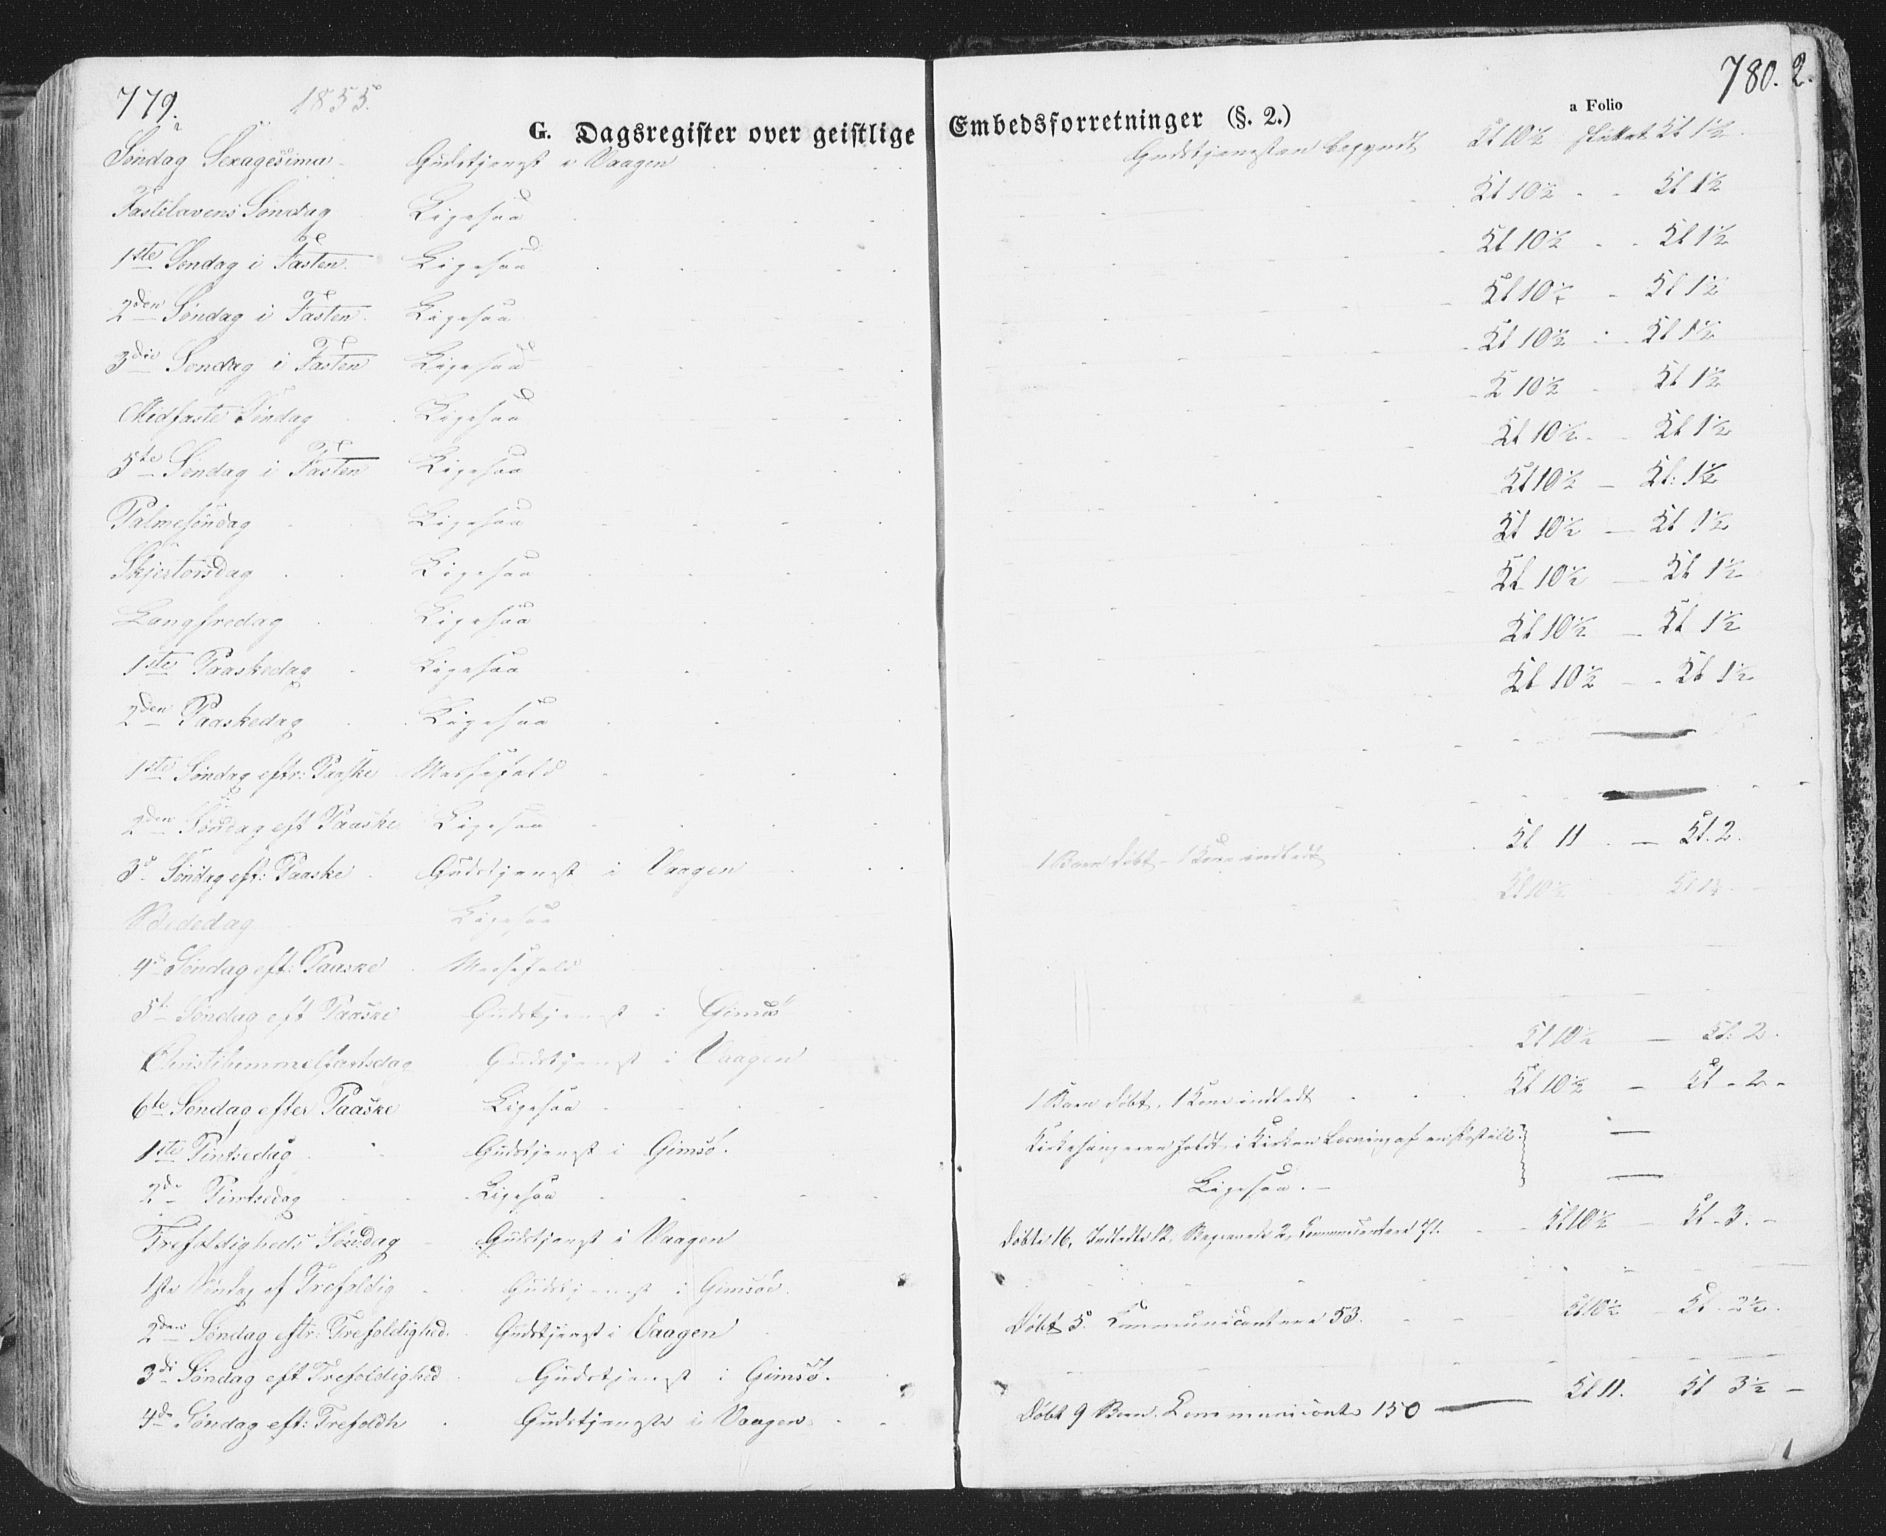 779. 1855. 780. 2.
G. Dagsregister over geistlige Embedsforretninger (§. 2.)
a Folio
Søndag Sexagesima Gudstjenest i Vaagen Gudstjenesten begyndt Kl 10½ sluttet Kl 1½
Fastelavens Søndag Ligesaa Kl 10½ Kl 1½
1ste Søndag i Fasten Ligesaa Kl 10½ Kl 1½
2den Søndag i Fasten Ligesaa Kl 10½ Kl 1½
3die Søndag i Fasten Ligesaa Kl 10½ Kl 1½
Midfaste Søndag Ligesaa Kl 10½ Kl 1½
5te Søndag i Fasten Ligesaa Kl 10½ Kl 1½
Palmesøndag Ligesaa Kl 10½ — Kl: 1½
Skjertorsdag Ligesaa Kl 10½ — Kl 1½
Langfredag Ligesaa Kl 10½ — Kl 1½
1ste Paaskedag Ligesaa Kl 10½ — Kl 1½
2den Paaskedag Ligesaa Kl 10½ — Kl 1½
1ste Søndag eftr: Paaske Messefald —
2den Søndag eft Paaske Ligesaa —
3d Søndag eft: Paaske Gudstjenest i Vaagen 1 Barn døbt – 1 Kone indledt Kl 11 — Kl. 2.
Bededag Ligesaa Kl 10½ Kl 1½
4d Søndag eft: Paaske Messefald
5te Søndag eft Paaske Gudstjenest i Gimsø
Christihimmelfartsdag Gudstjenest i Vaagen Kl 10½ — Kl: 2.
6te Søndag efter Paaske Ligesaa 1 Barn døbt, 1 Kone indledt Kl 10½ — Kl - 2 -
1ste Pintsedag Gudstjenest i Gimsø. Kirkesangeren holdt i Kirken Læsning af —
2den Pintsedag Ligesaa Ligesaa. — —
Trefoldigheds Søndag Gudstjenst i Vaagen Døbte 16, Indledte 12, Begravede 2, Communicanter 71. Kl 10½ — Kl - 3. -
1ste Søndag ef Trefoldig Gudstjenest i Gimsøe.
2den Søndag eftr: Trefoldighed. Gudstjenst i Vaagen Døbt 5. Communicantere 53. Kl 10½ — Kl. 2½.
3di Søndag eft Trefoldighed Gudstjenest i Gimsø.
4de Søndag eft: Trefoldh Gudstjenste i Vaagen Døbt 9 Børn. Communicante 150 — Kl 11. Kl 3½ —